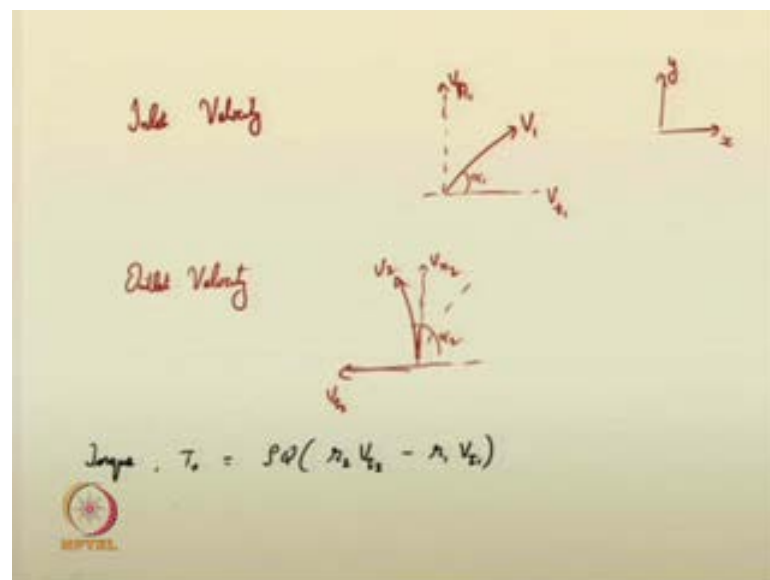 Inlet Velocity
V_R₁
V₁
α₁
V_t₁
y
x
Outlet Velocity
V₂
V_r₂
α₂
V_t₂
Torque, T₀ = ρQ( r₂ V_t₂ - r₁ V_t₁)
NPTEL